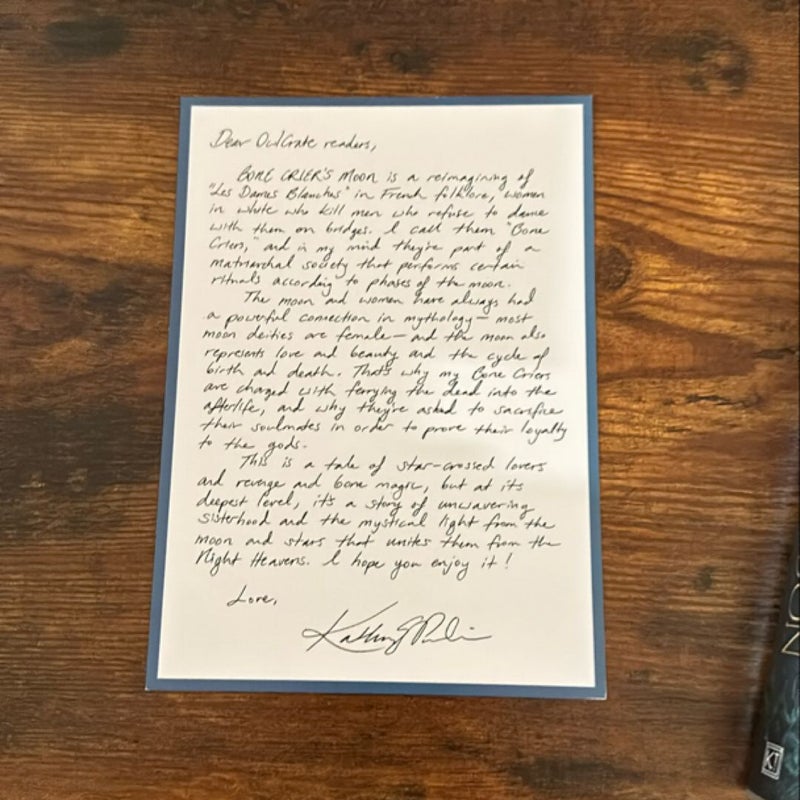 Dear OwlCrate readers,
BONE CRIER'S MOON is a reimagining of
"Les Dames Blanches" in French folklore, women
in white who kill men who refuse to dance
with them on bridges. I call them "Bone
Criers," and in my mind they're part of a
matriarchal society that performs certain
rituals according to phases of the moon.
The moon and women have always had
a powerful connection in mythology—most
moon deities are female—and the moon also
represents love and beauty and the cycle of
birth and death. That's why my Bone Criers
are charged with ferrying the dead into the
afterlife, and why they're asked to sacrifice
their soulmates in order to prove their loyalty
to the gods.
This is a tale of star-crossed lovers
and revenge and bone magic, but at its
deepest level, it's a story of unwavering
sisterhood and the mystical light from the
moon and stars that unites them from the
Night Heavens. I hope you enjoy it!
Love,
Kathryn Purdie
ON
KT